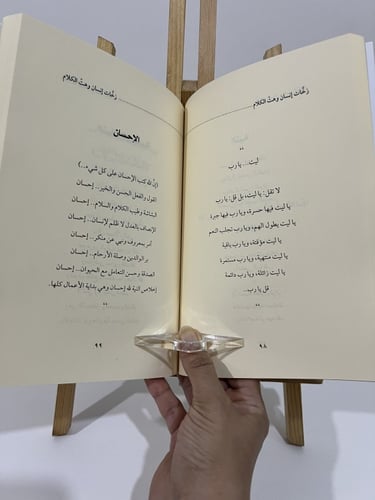 زخّات إنسان وهتّ الكلام
ليت... يا رب
لا تقل: يا ليت، بل قل: يا رب
يا ليت فيها حسرة، ويا رب فيها جبرة
يا ليت بطول الهم، ويا رب تجلب النعم
يا ليت مؤقتة، ويا رب باقية
يا ليت منتهية، ويا رب مستمرة
يا ليت زائلة، ويا رب دائمة
قل يا رب..
٩٨
زخّات إنسان وهتّ الكلام
الإحسان
(إن لله كتب الإحسان على كل شيء..)
القول والفعل الحسن والخير.. إحسان
البشاشة وطيب الكلام والسلام.. إحسان
الإنصاف بالعدل لا ظلم لإنسان.. إحسان
أمر بمعروف ونهي عن منكر.. إحسان
بر الوالدين وصلة الأرحام.. إحسان
الصدقة وحسن التعامل مع الحيوان.. إحسان
إخلاص النية لله إحسان وهي بداية الأعمال كلها.
٩٩